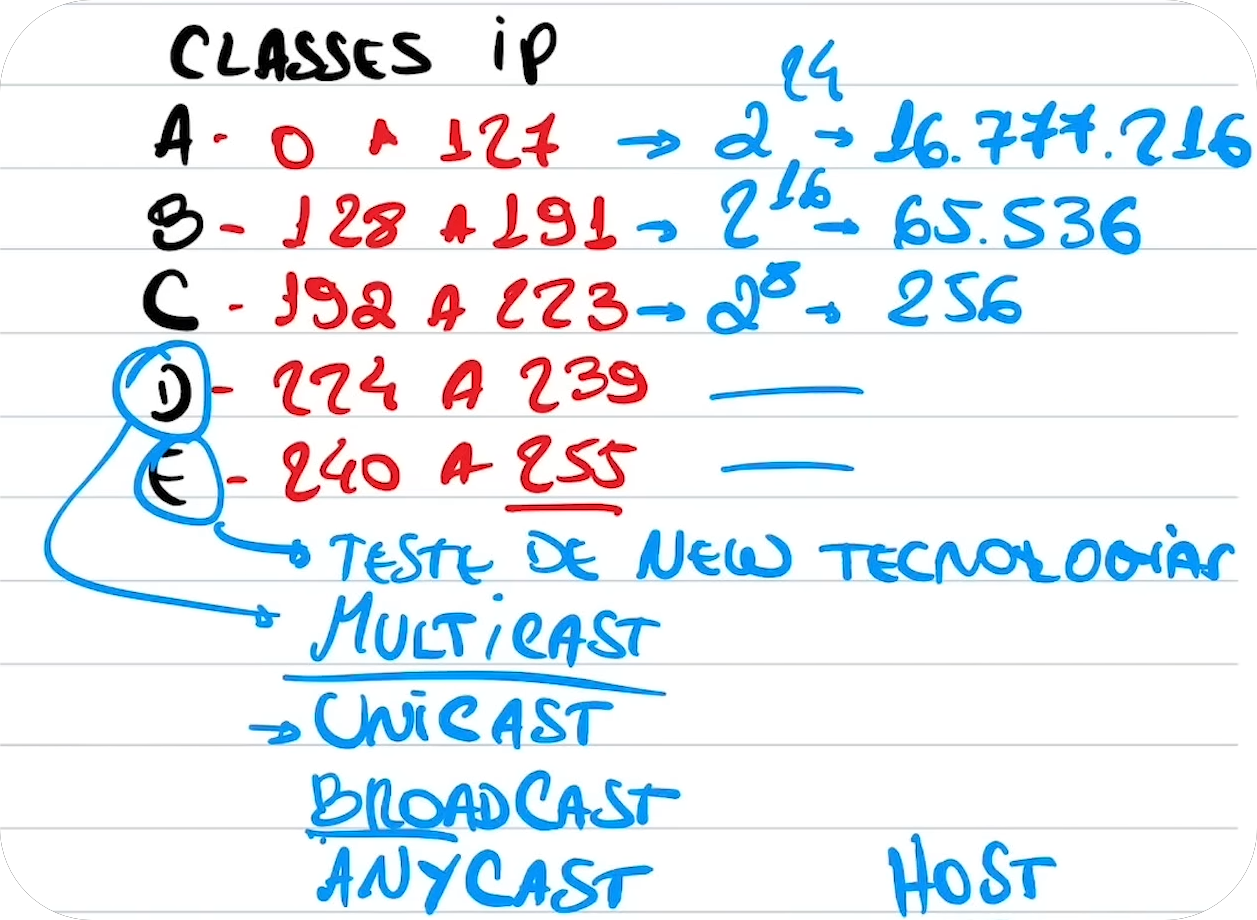 CLASSES iP
A - 0 A 127 → 2^24 → 16.777.216
B - 128 A 191 → 2^16 → 65.536
C - 192 A 223 → 2^8 → 256
D - 224 A 239 —
E - 240 A 255 —
TESTE DE NEW TECNOLOGIAS
MULTiCAST
→ UNiCAST
BROADCAST
ANYCAST HOST